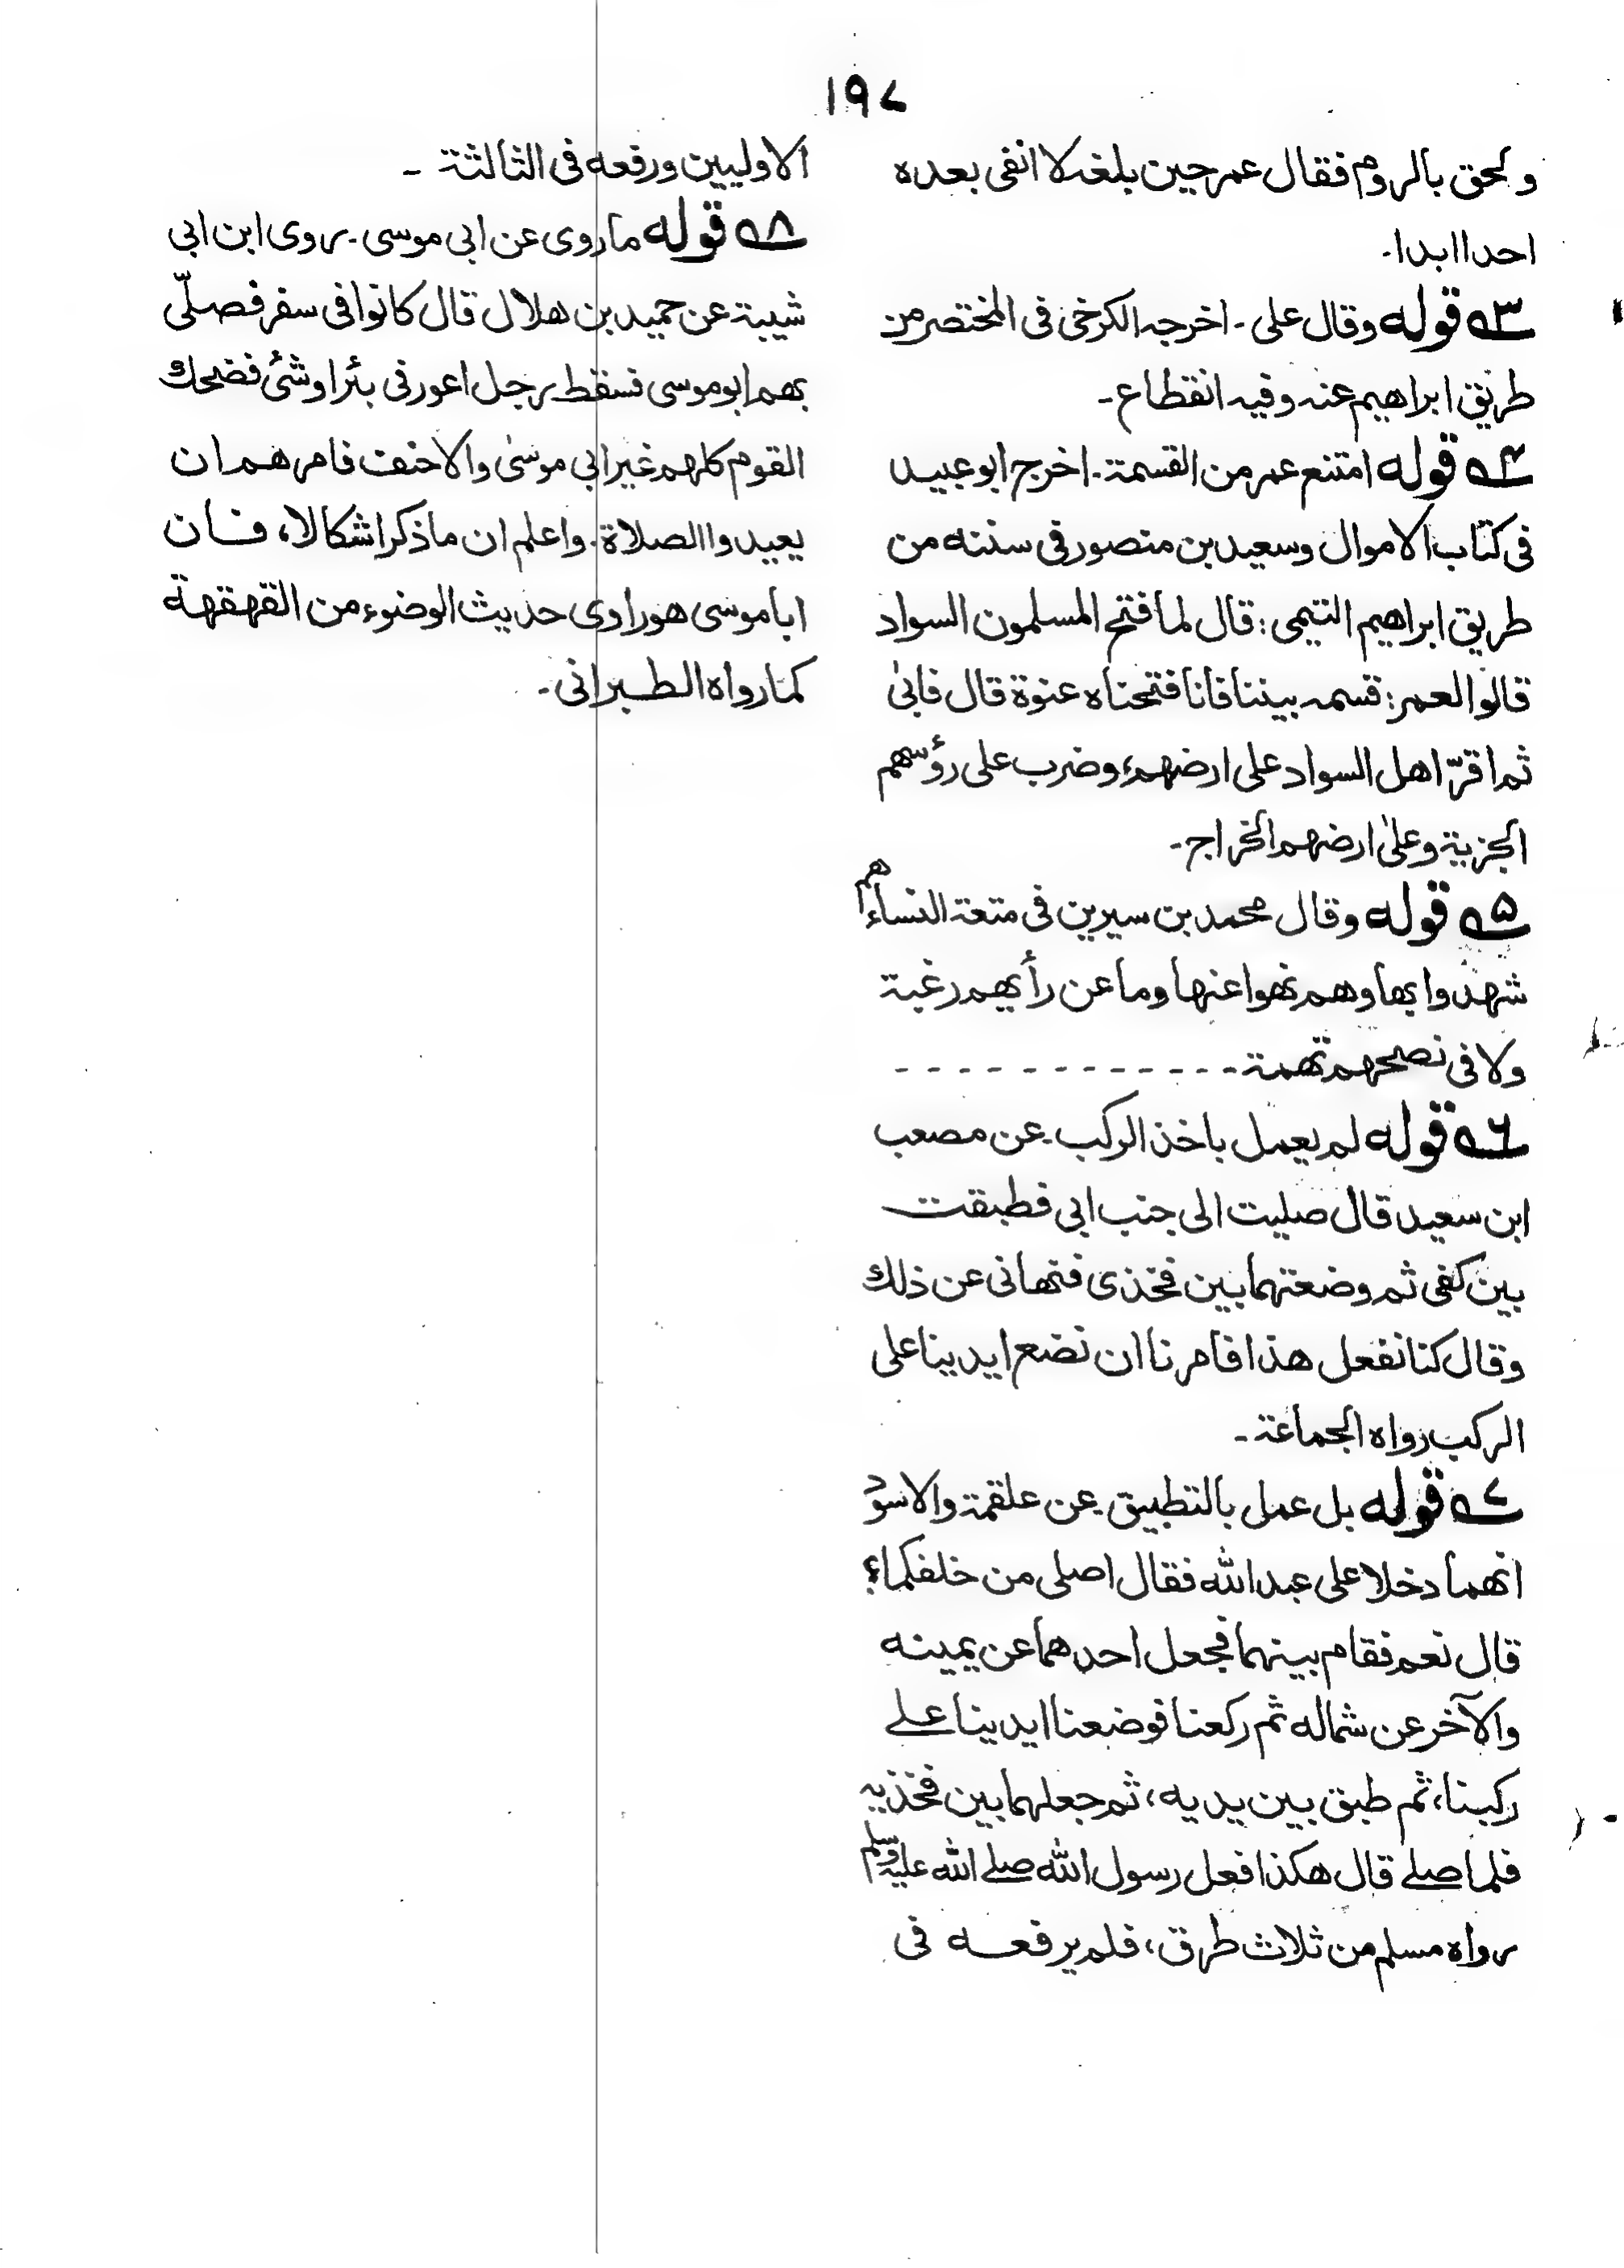 ١٩٧
ولحق بالروم فقال عمر حين بلغه لا انفى بعده
احدا ابدا۔
٣؎ قوله وقال على ۔ اخرجه الكرخى فى المختصر من
طريق ابراهيم عنه وفيه انقطاع ۔
۴؎ قوله امتنع عمر من القسمة ۔ اخرج ابو عبيد
فى كتاب الاموال وسعيد بن منصور فى سننه من
طريق ابراهيم التيمى : قال لما فتح المسلمون السواد
قالوا لعمر : قسمه بيننا فانا فتحناه عنوة قال فابىٰ
ثم اقرّ اهل السواد على ارضهم، وضرب على رؤسهم
الجزية وعلىٰ ارضهم الخراج ۔
۵؎ قوله وقال محمد بن سيرين فى متعة النساء هم
شهدوا بها وهم نهوا عنها وما عن رأيهم رغبة
ولا فى نصحهم تهمة ۔ - - - - - - - - - - -
۶؎ قوله لم يعمل باخذ الركب ۔ عن مصعب
ابن سعيد قال صليت الى جنب ابى فطبقت
بين كفى ثم وضعتهما بين فخذى فنهانى عن ذلك
وقال كنا نفعل هذا فامرنا ان نضع ايدينا على
الركب رواه الجماعة ۔
٧؎ قوله بل عمل بالتطبيق ۔ عن علقمة والاسود
انهما دخلا على عبد الله فقال اصلى من خلفكما؟
قال نعم فقام بينهما فجعل احدهما عن يمينه
والآخر عن شماله ثم ركعنا فوضعنا ايدينا علے
ركبنا، ثم طبق بين يديه، ثم جعلهما بين فخذيه
فلما صلے قال هكذا فعل رسول الله صلے الله عليه وسلم
رواه مسلم من ثلاث طرق، فلم يرفعه فى
الاوليين ورفعه فى الثالثة ۔
٨؎ قوله ما روى عن ابى موسى ۔ روى ابن ابى
شيبة عن حميد بن هلال قال كانوا فى سفر فصلّى
بهم ابو موسى فسقط رجل اعور فى بئر او شئ فضحك
القوم كلهم غير ابى موسىٰ والاحنف فامرهم ان
يعيدوا الصلاة ۔ واعلم ان ما ذكر اشكالا، فان
ابا موسى هو راوى حديث الوضوء من القهقهة
كما رواه الطبرانى ۔